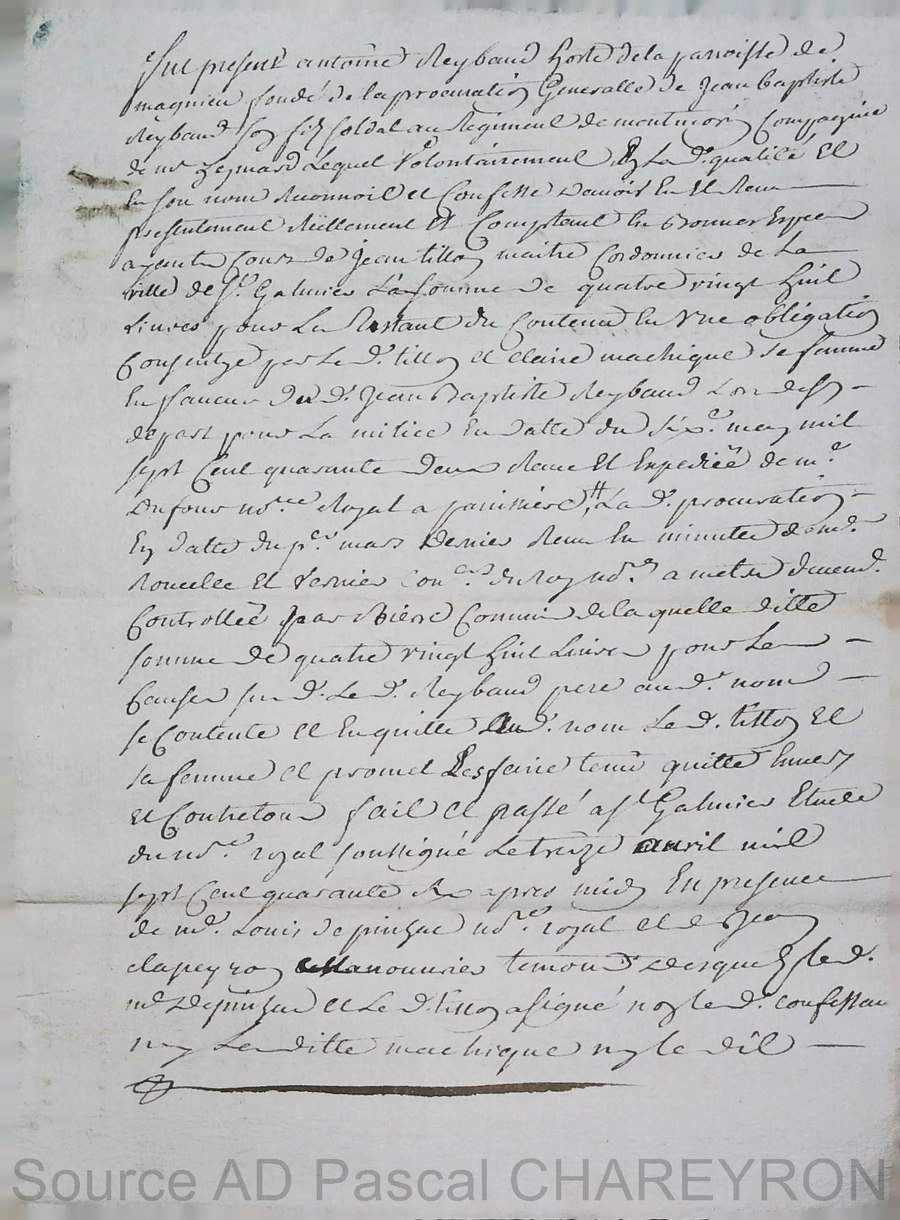 fut present antoine Reybaud hoste de la parroisse de
magnieu fondé de la procuration Generalle de Jean baptiste
Reybaud soy fils soldat au Regiment de montmorin Compagnie
de mr lequel Volontairement Ey La d. qualité Et
En son nom Reconnoit et Confesse avoir Eu Et Receu
presentement Réellement Et Comptant En bonnes Especes
ayants Cours de jean tillon maitre Cordonnier de La
ville de St. Galmier La somme de quatre vingt huit
Livres pour Le Restant du Contenu En Vne obligation
Consentye par Le d. tillon et claire machique sa femme
En faveur du d. Jean Baptiste Reybaud Lors de son
depart pour La milice En datte du six may mil
sept Cent quarante deux Receue Et Expediée de me
Dufour nore Royal a panissiere, La d. procuration
Ey datte du per mars dernier Receu En minutte
Et Vernier du Roy a metz
Controllée par Commis de la quelle ditte
somme de quatre vingt huit Livres pour Les
Causes sus d. Le d. Reybaud pere au d. nom
se Contente et En quitte Au d. nom Le d. tillon Et
sa femme et promet Les faire tenir quitte Envers
Et Contre tous fait et passé a St Galmier Etude
du nore royal soussigné Le treize avril mil
sept Cent quarante six apres midy En presence
de me. Louis depinhac nore royal et de Jean
clapeyron temoins desquels le d.
me depinhac et Le d. tillon a signé non le d. confessant
ny La ditte machique ny le dit
Source AD Pascal CHAREYRON